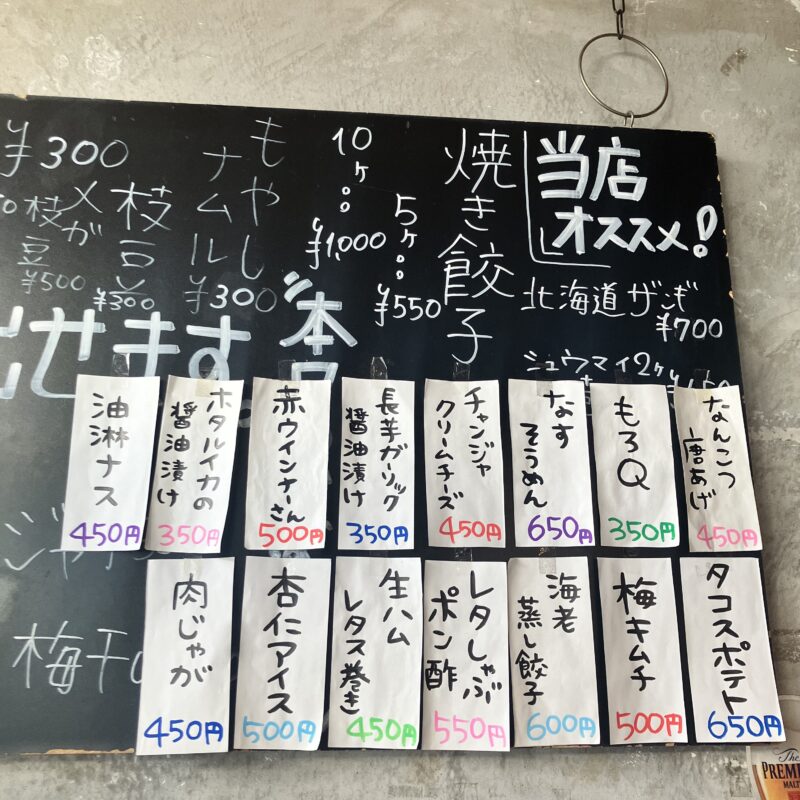 当店
オススメ!
北海道ザンギ
¥700
シュウマイ2ケ
焼き餃子
5ケ…¥550
10ケ…¥1,000
もやし
ナムル
¥300
枝豆
¥300
メガ
枝豆
¥500
¥300
せます
なんこつ
唐あげ
450円
もろQ
350円
なす
そうめん
650円
チャンジャ
クリームチーズ
450円
長芋ガーリック
醤油漬け
350円
赤ウインナーさん
500円
ホタルイカの
醤油漬け
350円
油淋ナス
450円
タコスポテト
650円
梅キムチ
500円
海老
蒸し餃子
600円
レタしゃぶ
ポン酢
550円
生ハム
レタス巻き
450円
杏仁アイス
500円
肉じゃが
450円
梅干
The
PREMI
MALT